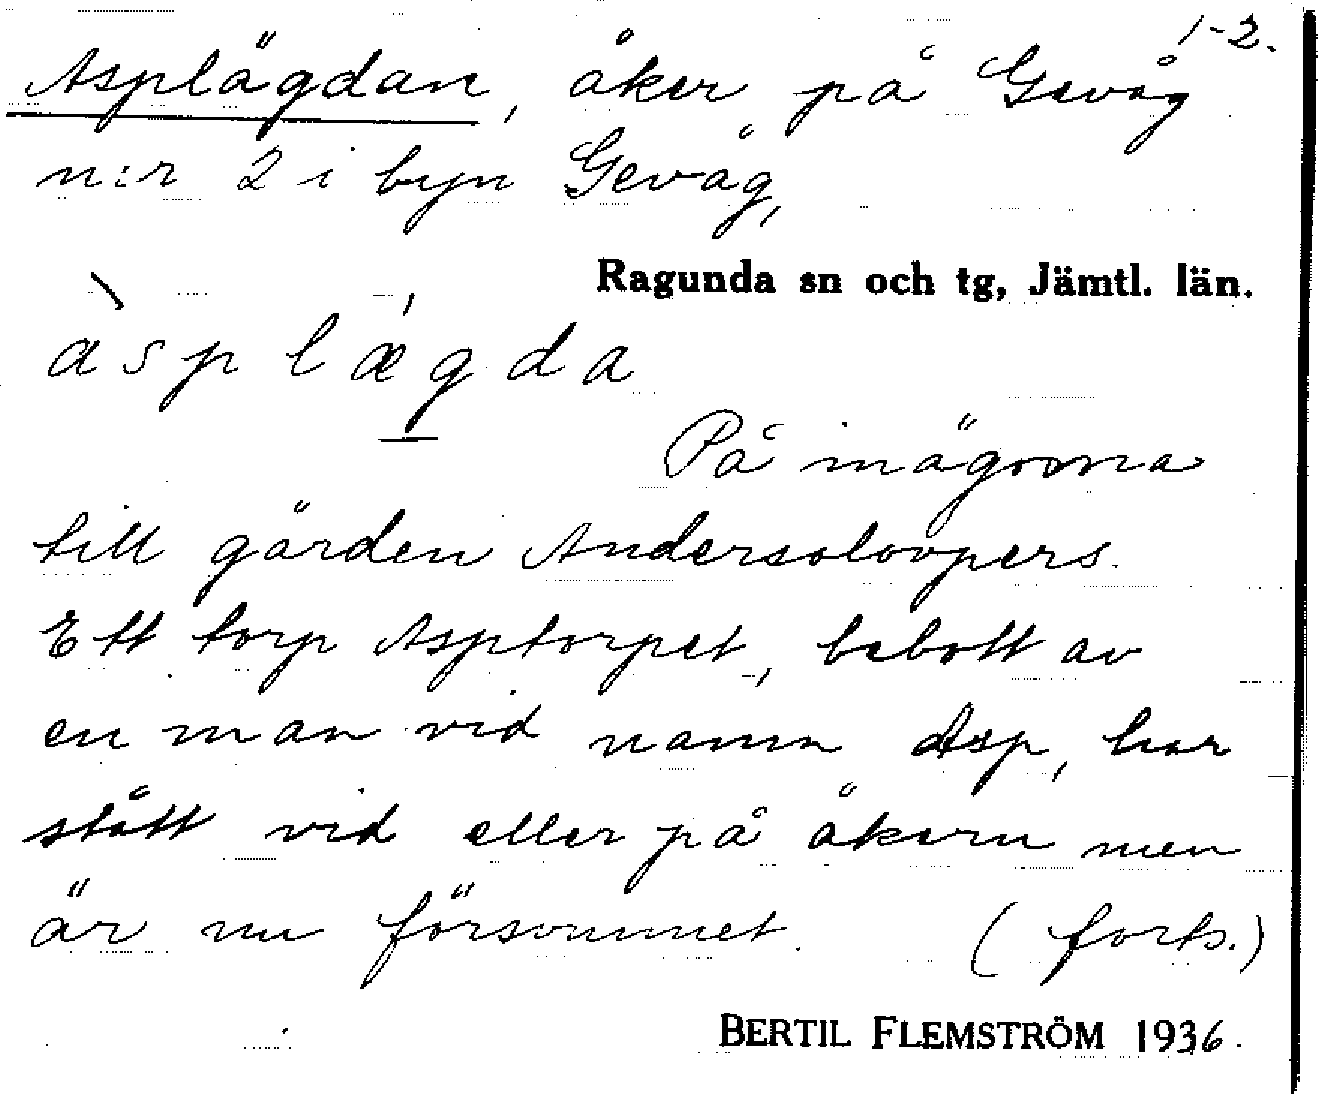 1-2.
Asplägdan, åker på Gevåg
n:r 2 i byn Gevåg,
Ragunda sn och tg, Jämtl. län.
àsplǽgda
På inägorna
till gården Andersolovpers.
Ett torp Asptorpet, bebott av
en man vid namn Asp, har
stått vid eller på åkern men
är nu försvunnet. (forts.)
BERTIL FLEMSTRÖM 1936.